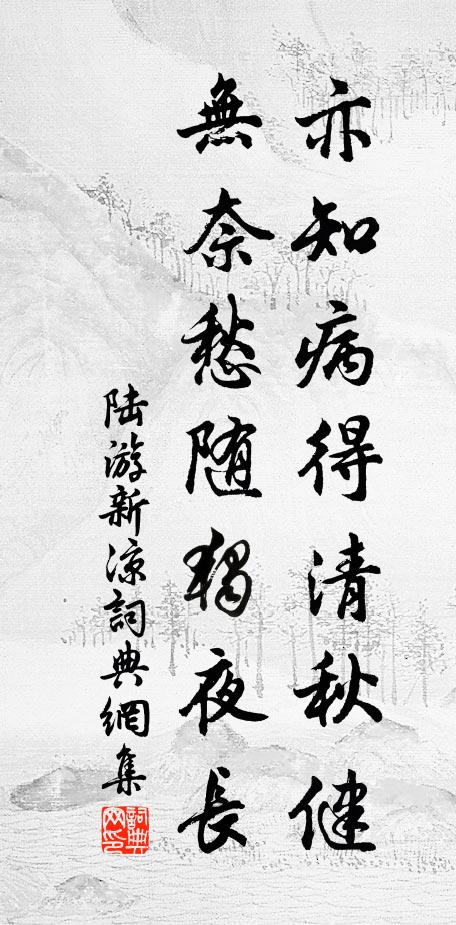 亦知病得清秋健
無奈愁随獨夜長
陆游新凉詞典網集
詞典网印